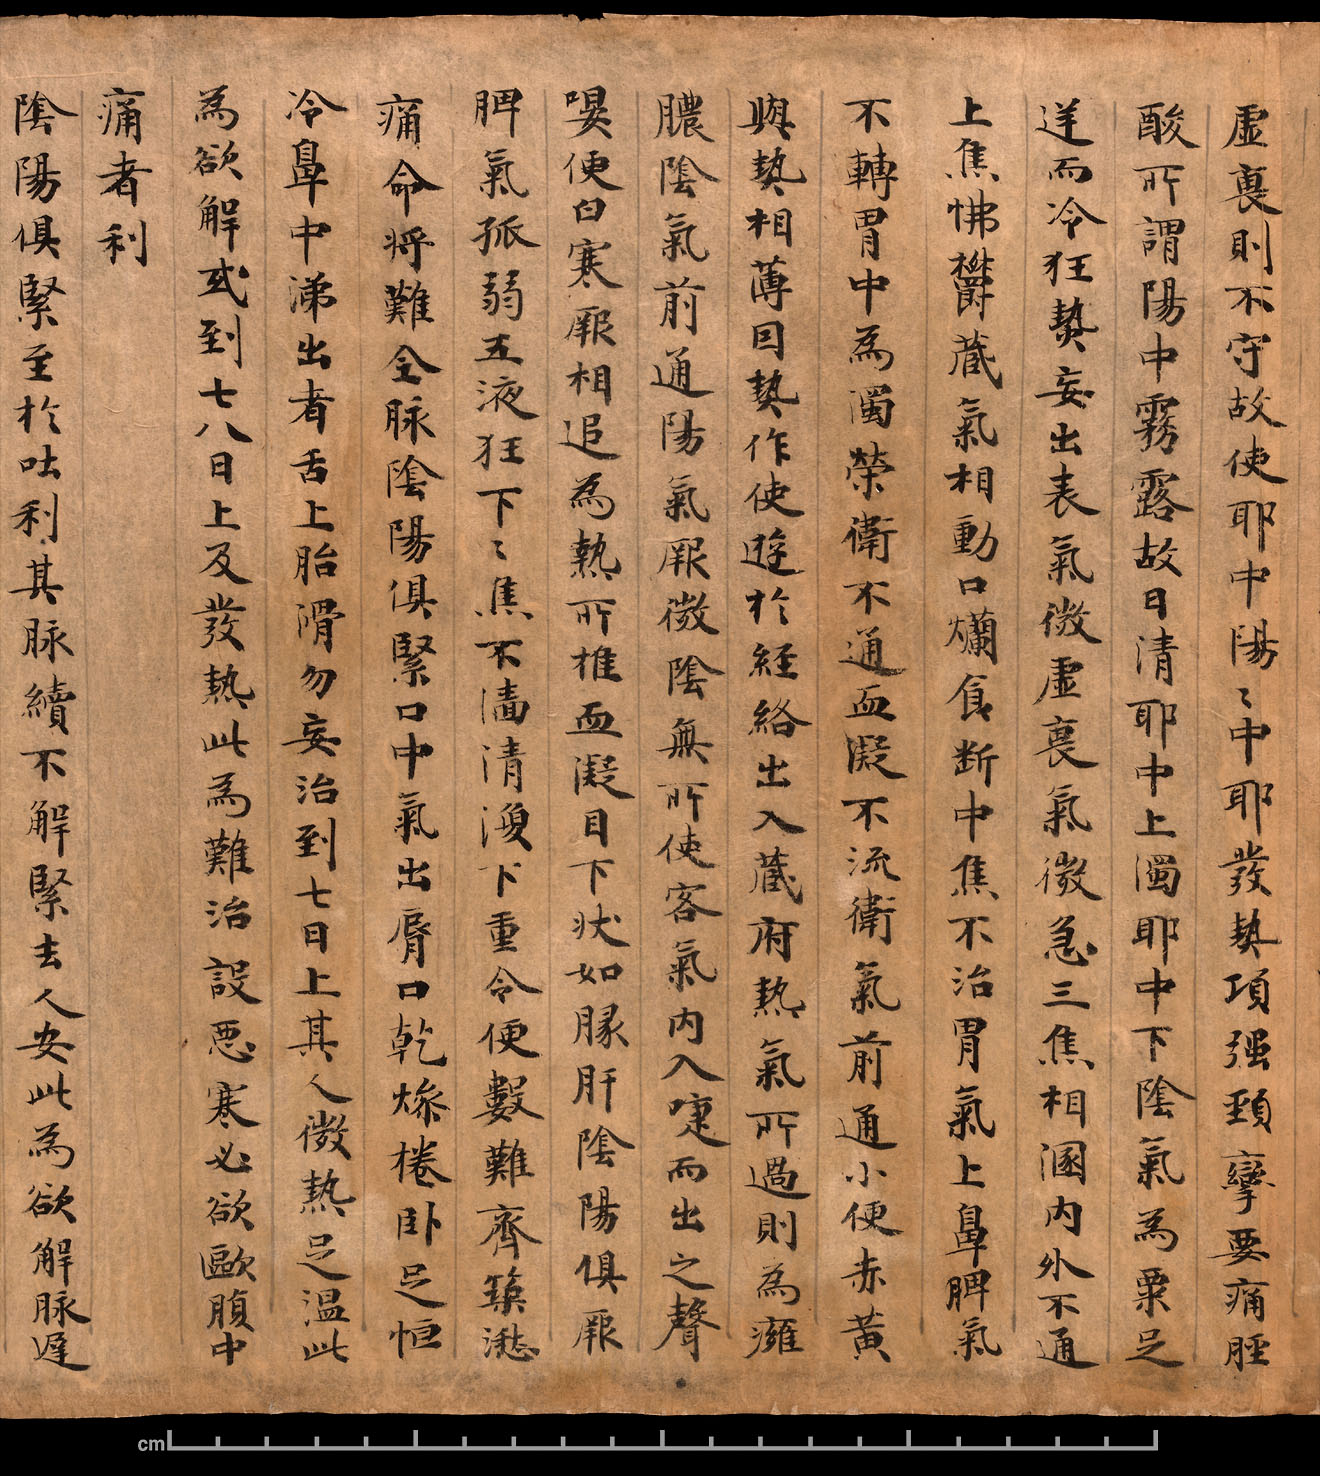 虛衰則不守故使耶中陽〻中耶發熱項强頸攣要痛脛
酸所謂陽中霧露故曰清耶中上濁耶中下陰氣為粟足
逆而冷狂熱妄出表氣微虛衰氣微急三焦相溷内外不通
上焦怫欝蔵氣相動口爛食断中焦不治胃氣上鼻脾氣
不轉胃中為濁榮衛不通血凝不流衛氣前通小便赤黃
與熱相薄因熱作使遊於經絡出入蔵府熱氣所過則為癰
膿陰氣前通陽氣厥微陰無所使客氣内入嚏而出之聲
嗢便白寒厥相追為熱所推血凝目下状如豚肝陰陽俱厥
脾氣孤弱五液狂下〻焦不濇清溲下重令便數難齊築湫
痛命将難全脉陰陽俱緊口中氣出脣口乾燥棬卧足恒
冷鼻中涕出者舌上胎滑勿妄治到七日上其人微熱足温此
為欲解或到七八日上及發熱此為難治設惡寒必欲歐腹中
痛者利
陰陽俱緊至於吐利其脉續不解緊去人安此為欲解脉遲